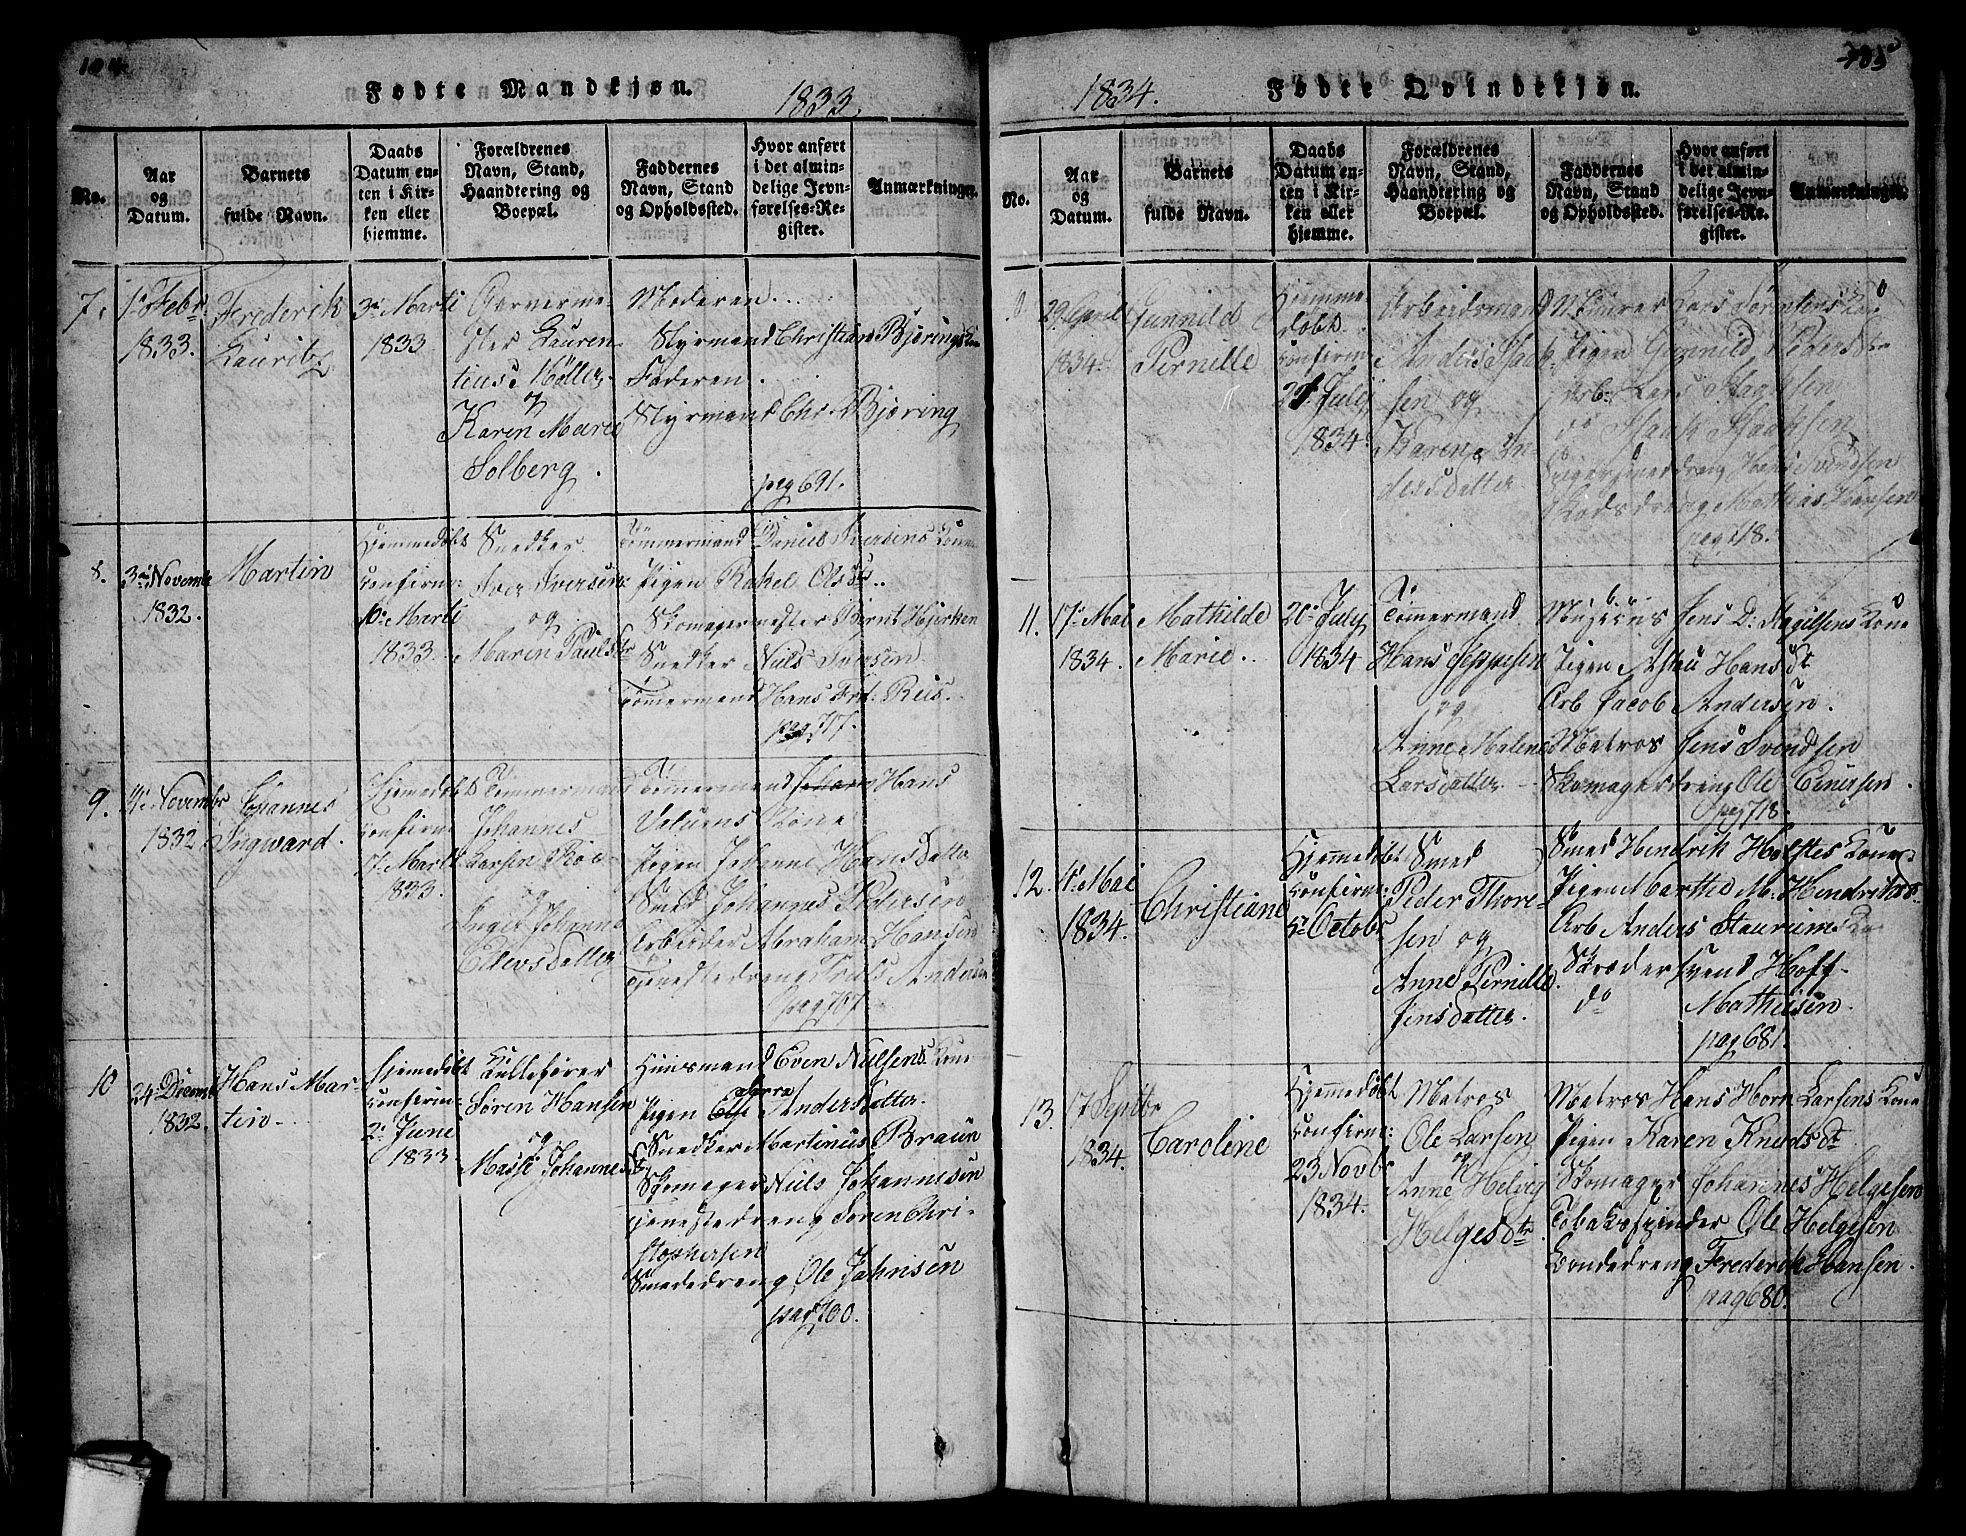 104
Fødte Mandkjøn.
1833.
No.
Aar
og
Datum.
Barnets
fulde Navn.
Daabs
Datum en-
ten i Kir-
ken eller
hjemme.
Forældrenes
Navn, Stand,
Haandtering og
Boepæl.
Faddernes
Navn, Stand
og Opholdssted.
Hvor anført
i det almin-
delige Jevn-
førelses-Re-
gister.
Anmærkninger.
7.
1. Febr.
1833.
Frederik
Lauritz
3. Marti
1833
Garverme-
ster Lauren-
tius Møller
og
Karen Marie
Solberg.
Moderen...
Styrmand Christian Bjørings Kone
Faderen.
Styrmand Chr. Bjøring
pag 691.
8.
3. Novembr
1832.
Martin
Hjemmedøbt
confirm:
10. Marti
1833.
Snedker
Iver Iversen
og
Maren Pauls Dtr
Tømmermand Daniel Iversens Kone
Pigen Rakel Ols Dtr
Skomagermester Bernt Hjerken
Snedker Niels Iversen
Tømmermand Hans Frd. Reis.
pag 717.
9.
4. Novembr
1832
Johannes
Ingward.
Hjemedøbt
confirm
17. Marti
1833.
Tømmermand
Johannes
Larsen Röe
og
Inger Johanne
Ellevsdatter
Tømmermand Johan Hans
Kone
Pigen Johanne Hansdatter
Smed Johannes Pedersen
Arbeider Abraham Hansen
Tjenestedreng Truls Andersen
pag 707
10
24. Decembr
1832.
Hans Mar-
tin
Hjemedøbt
confirm:
2. June
1833.
Kullefører
Søren Hansen
og
Masse Johannesdtr
Huusmand Even Nielsens Kone
Pigen Else Andersdatter.
Snedker Martinus Braun
Skomager Niels Johannesen
Tjenestedreng Søren Chri-
stophersen
Smededreng Ole Johnsen
pag 700.
705
1834.
Fødte Qvindekjøn.
No.
Aar
og
Datum.
Barnets
fulde Navn.
Daabs
Datum en-
ten i Kir-
ken eller
hjemme.
Forældrenes
Navn, Stand,
Haandtering og
Boepæl.
Faddernes
Navn, Stand
og Opholdssted.
Hvor anført
i det almin-
delige Jevn-
førelses-Re-
gister.
Anmærkninger.
29. April
1834.
Gunnild
Pernille
Hjemme
døbt.
confirm
27. July
1834.
Arbeidsmand
Anders Isak-
sen og
Karen An-
dersdatter
Muurer Lars Sørensens Kone
Pigen Gunnild Peders Dtr
Arb. Lars Isaksen
do Isak Isaksen
Hans Svendsen
Mathias Hansen
pag 718.
11.
17. Mai
1834.
Mathilde
Marie.
20. July
1834
Tømmermand
Hans Jeppesen
og
Anne Malene
Larsdatter
Jens D. Kone
Pigen Hans Dt
Arb Jacob Andersen.
Matros Jens Svendsen
Skomagerdreng Ole Einersen
pag 718.
12.
4. Mai
1834.
Christiane
Hjemmedøbt
confirm:
5. Octobr
Smed
Peder Thore-
sen og
Anne Pernille
Jensdatter.
Smed Hendrik Holstes Kone
Pigen Marthe M. Hendriksd.
Arb Anders
Skrædersvend Hoff
do Mathisen.
pag 681.
13.
17 Septbr
1834.
Caroline
Hjemmedøbt
confirm:
23 Novbr
1834.
Matros
Ole Larsen
og
Anne Helvig
Helgesdtr
Matros Hans Horn Larsens Kone
Pigen Karen Knudsdt
Skomager Johannes Helgesen
Tobakspinder Ole Helgesen
Bondedreng Frederik Hansen.
pag 680.